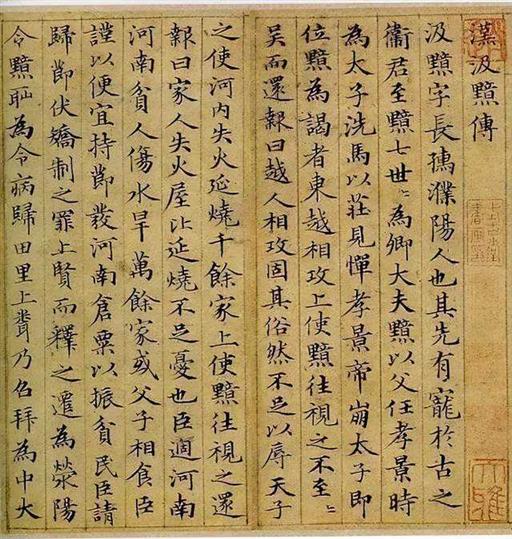 漢汲黯傳
汲黯字長孺濮陽人也其先有寵於古之
衛君至黯七世〻為卿大夫黯以父任孝景時
為太子洗馬以莊見憚孝景帝崩太子即
位黯為謁者東越相攻上使黯往視之不至〻
吳而還報曰越人相攻固其俗然不足以辱天子
之使河內失火延燒千餘家上使黯往視之還
報曰家人失火屋比延燒不足憂也臣過河南
河南貧人傷水旱萬餘家或父子相食臣
謹以便宜持節發河南倉粟以振貧民臣請
歸節伏矯制之罪上賢而釋之遷為滎陽
令黯恥為令病歸田里上聞乃召拜為中大